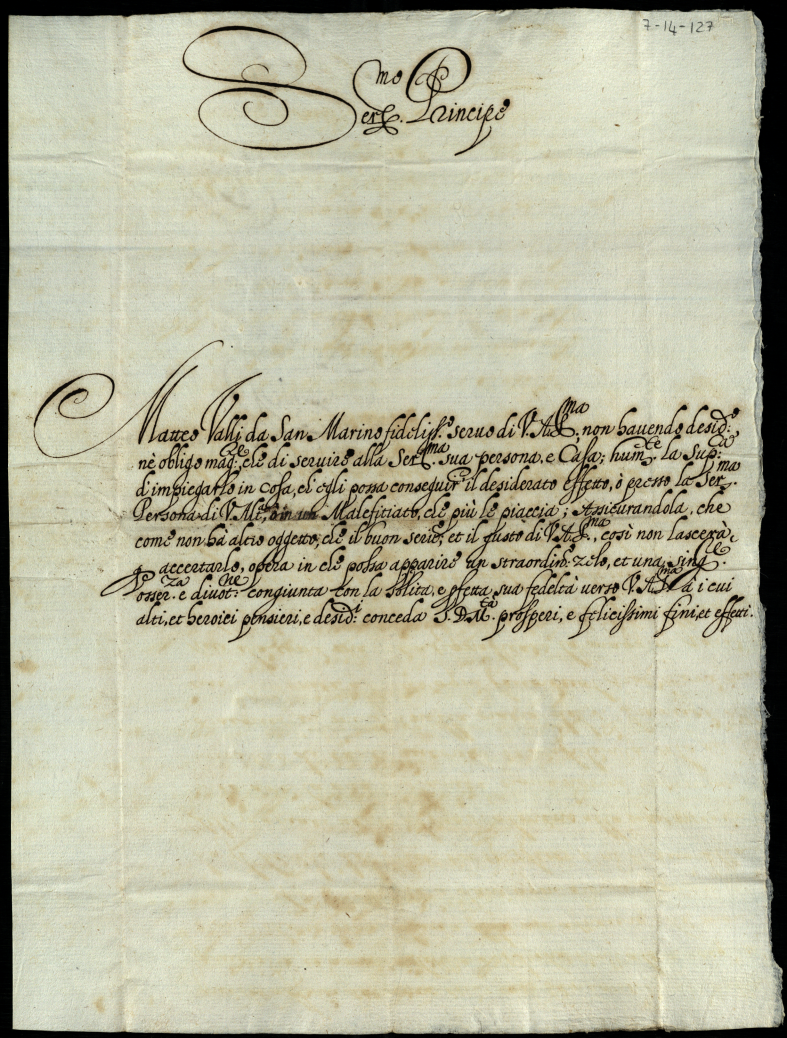 7-14-127
Ser.mo Principe
Matteo Valli da San Marino fideliss.o servo di V. A. S.ma, non havendo desid.o,
nè obligo magg.re, che di servire alla Ser.ma sua persona, e Casa; hum.te la sup.ca
d'impiegarlo in cosa, ch'egli possa conseguir il desiderato effetto, ò presso la Ser.ma
Persona di V. Alt.a, ò in un Malefitiato, che più le piaccia; Assicurandola, che
come non hà altro oggetto, che il buon servo, et il gusto di V. A. S.ma, così non lascerà,
p accertarlo, opera in che possa apparire un straordin.o zelo, et una sing.re
osser.za e divot.ne congiunta con la solita, e pfetta sua fedeltà verso V. A. S.ma à i cui
alti, et heroici pensieri, e desid.i conceda S. D. M.tà prosperi, e felicissimi fini, et effetti.